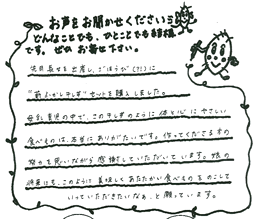 お声をお聞かせください
どんなことでも、ひとことでも結構
です。ぜひお寄せ下さい。
先日長女を出産し、ごほうび(?)に
"前ぶれ干しぎ"セットを購入しました。
母乳育児の中で、この干しぎのように体と心にやさしい
食べものは、本当にありがたいです。作ってくださる方の
努力を思いながら感謝していただいています。娘の
将来にも、このように美味しくあたたかい食べものをのこして
いっていただきたいなぁ、と願っています。